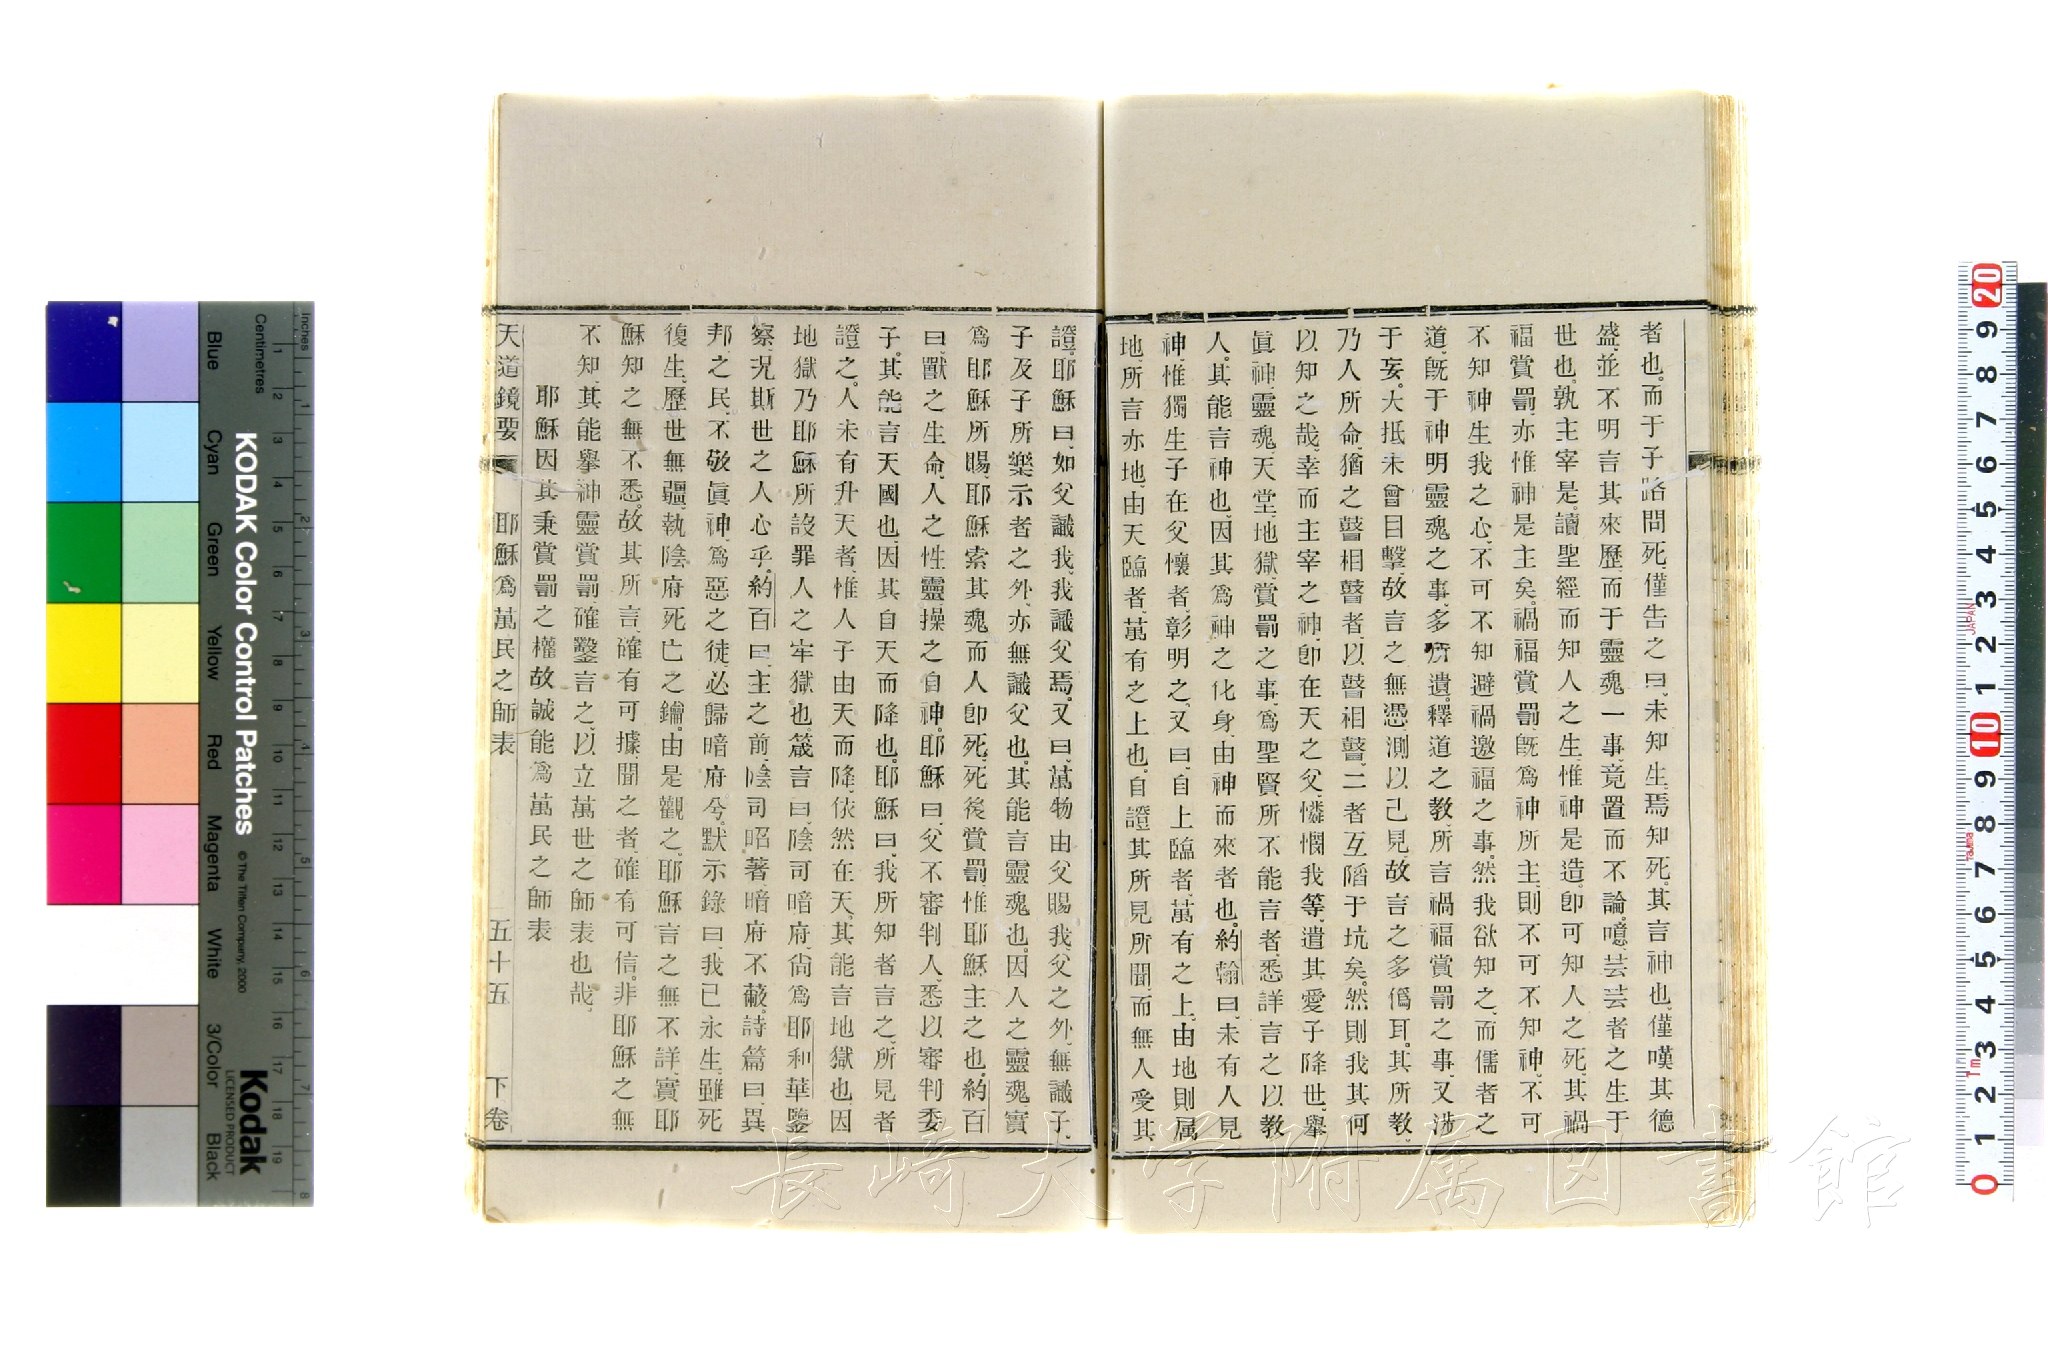 者也。而于子路問死、僅告之曰、未知生、焉知死。其言神也、僅嘆其德
盛、並不明言其來歷、而于靈魂一事、竟置而不論。噫、芸芸者之生于
世也、孰主宰是。讀聖經而知人之生、惟神是造、卽可知人之死、其禍
福賞罰、亦惟神是主矣。禍福賞罰、旣爲神所主、則不可不知神、不可
不知神生我之心、不可不知避禍邀福之事。然我欲知之、而儒者之
道、旣于神明靈魂之事、多所遺。釋道之敎、所言禍福賞罰之事、又涉
于妄。大抵未曾目擊、故言之無憑、測以己見、故言之多僞耳。其所敎、
乃人所命、猶之瞽相瞽者、以瞽相瞽、二者互陷于坑矣。然則我其何
以知之哉、幸而主宰之神、卽在天之父、憐憫我等、遣其愛子降世、舉
眞神、靈魂、天堂、地獄、賞罰之事、爲聖賢所不能言者、悉詳言之、以敎
人。其能言神也、因其爲神之化身、由神而來者也。約翰曰、未有人見
神、惟獨生子在父懷者、彰明之、又曰、自上臨者、萬有之上、由地則属
地、所言亦地、由天臨者、萬有之上也。自證其所見所聞、而無人受其
證。耶穌曰、如父識我、我識父焉。又曰、萬物由父賜我、父之外、無識子、
子及子所樂示者之外、亦無識父也。其能言靈魂也、因人之靈魂、實
爲耶穌所賜、耶穌索其魂而人卽死、死後賞罰、惟耶穌主之也。約百
曰、獸之生命、人之性靈、操之自神。耶穌曰、父不審判人、悉以審判委
子。其能言天國也、因其自天而降也。耶穌曰、我所知者言之、所見者
證之。人未有升天者、惟人子由天而降、依然在天、其能言地獄也、因
地獄乃耶穌所設罪人之牢獄也。箴言曰、陰司暗府、尙爲耶利華鑒
察、况斯世之人心乎。約百曰、主之前、陰司昭著、暗府不蔽。詩篇曰、異
邦之民、不敬眞神、爲惡之徒、必歸暗府兮。默示錄曰、我已永生、雖死
復生、歷世無疆、執陰府死亡之鑰。由是觀之、耶穌言之無不詳、實耶
穌知之無不悉。故其所言、確有可據、聞之者、確有可信。非耶穌之無
不知、其能舉神靈賞罰、確鑿言之、以立萬世之師表也哉、
耶穌因其秉賞罰之權、故誠能爲萬民之師表
天道鏡要 耶穌爲萬民之師表 五十五 下卷
長崎大学附属図書館
KODAK Color Control Patches
© The Tiffen Company, 2000
Kodak
LICENSED PRODUCT
Inches
Centimetres
Blue Cyan Green Yellow Red Magenta White 3/Color Black
JAPAN